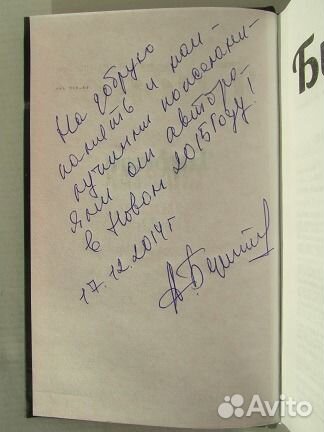 На добрую
память и наи-
лучшими пожелани-
ями от автора
в Новом 2015 году!
17.12.2014 г
Би
Avito